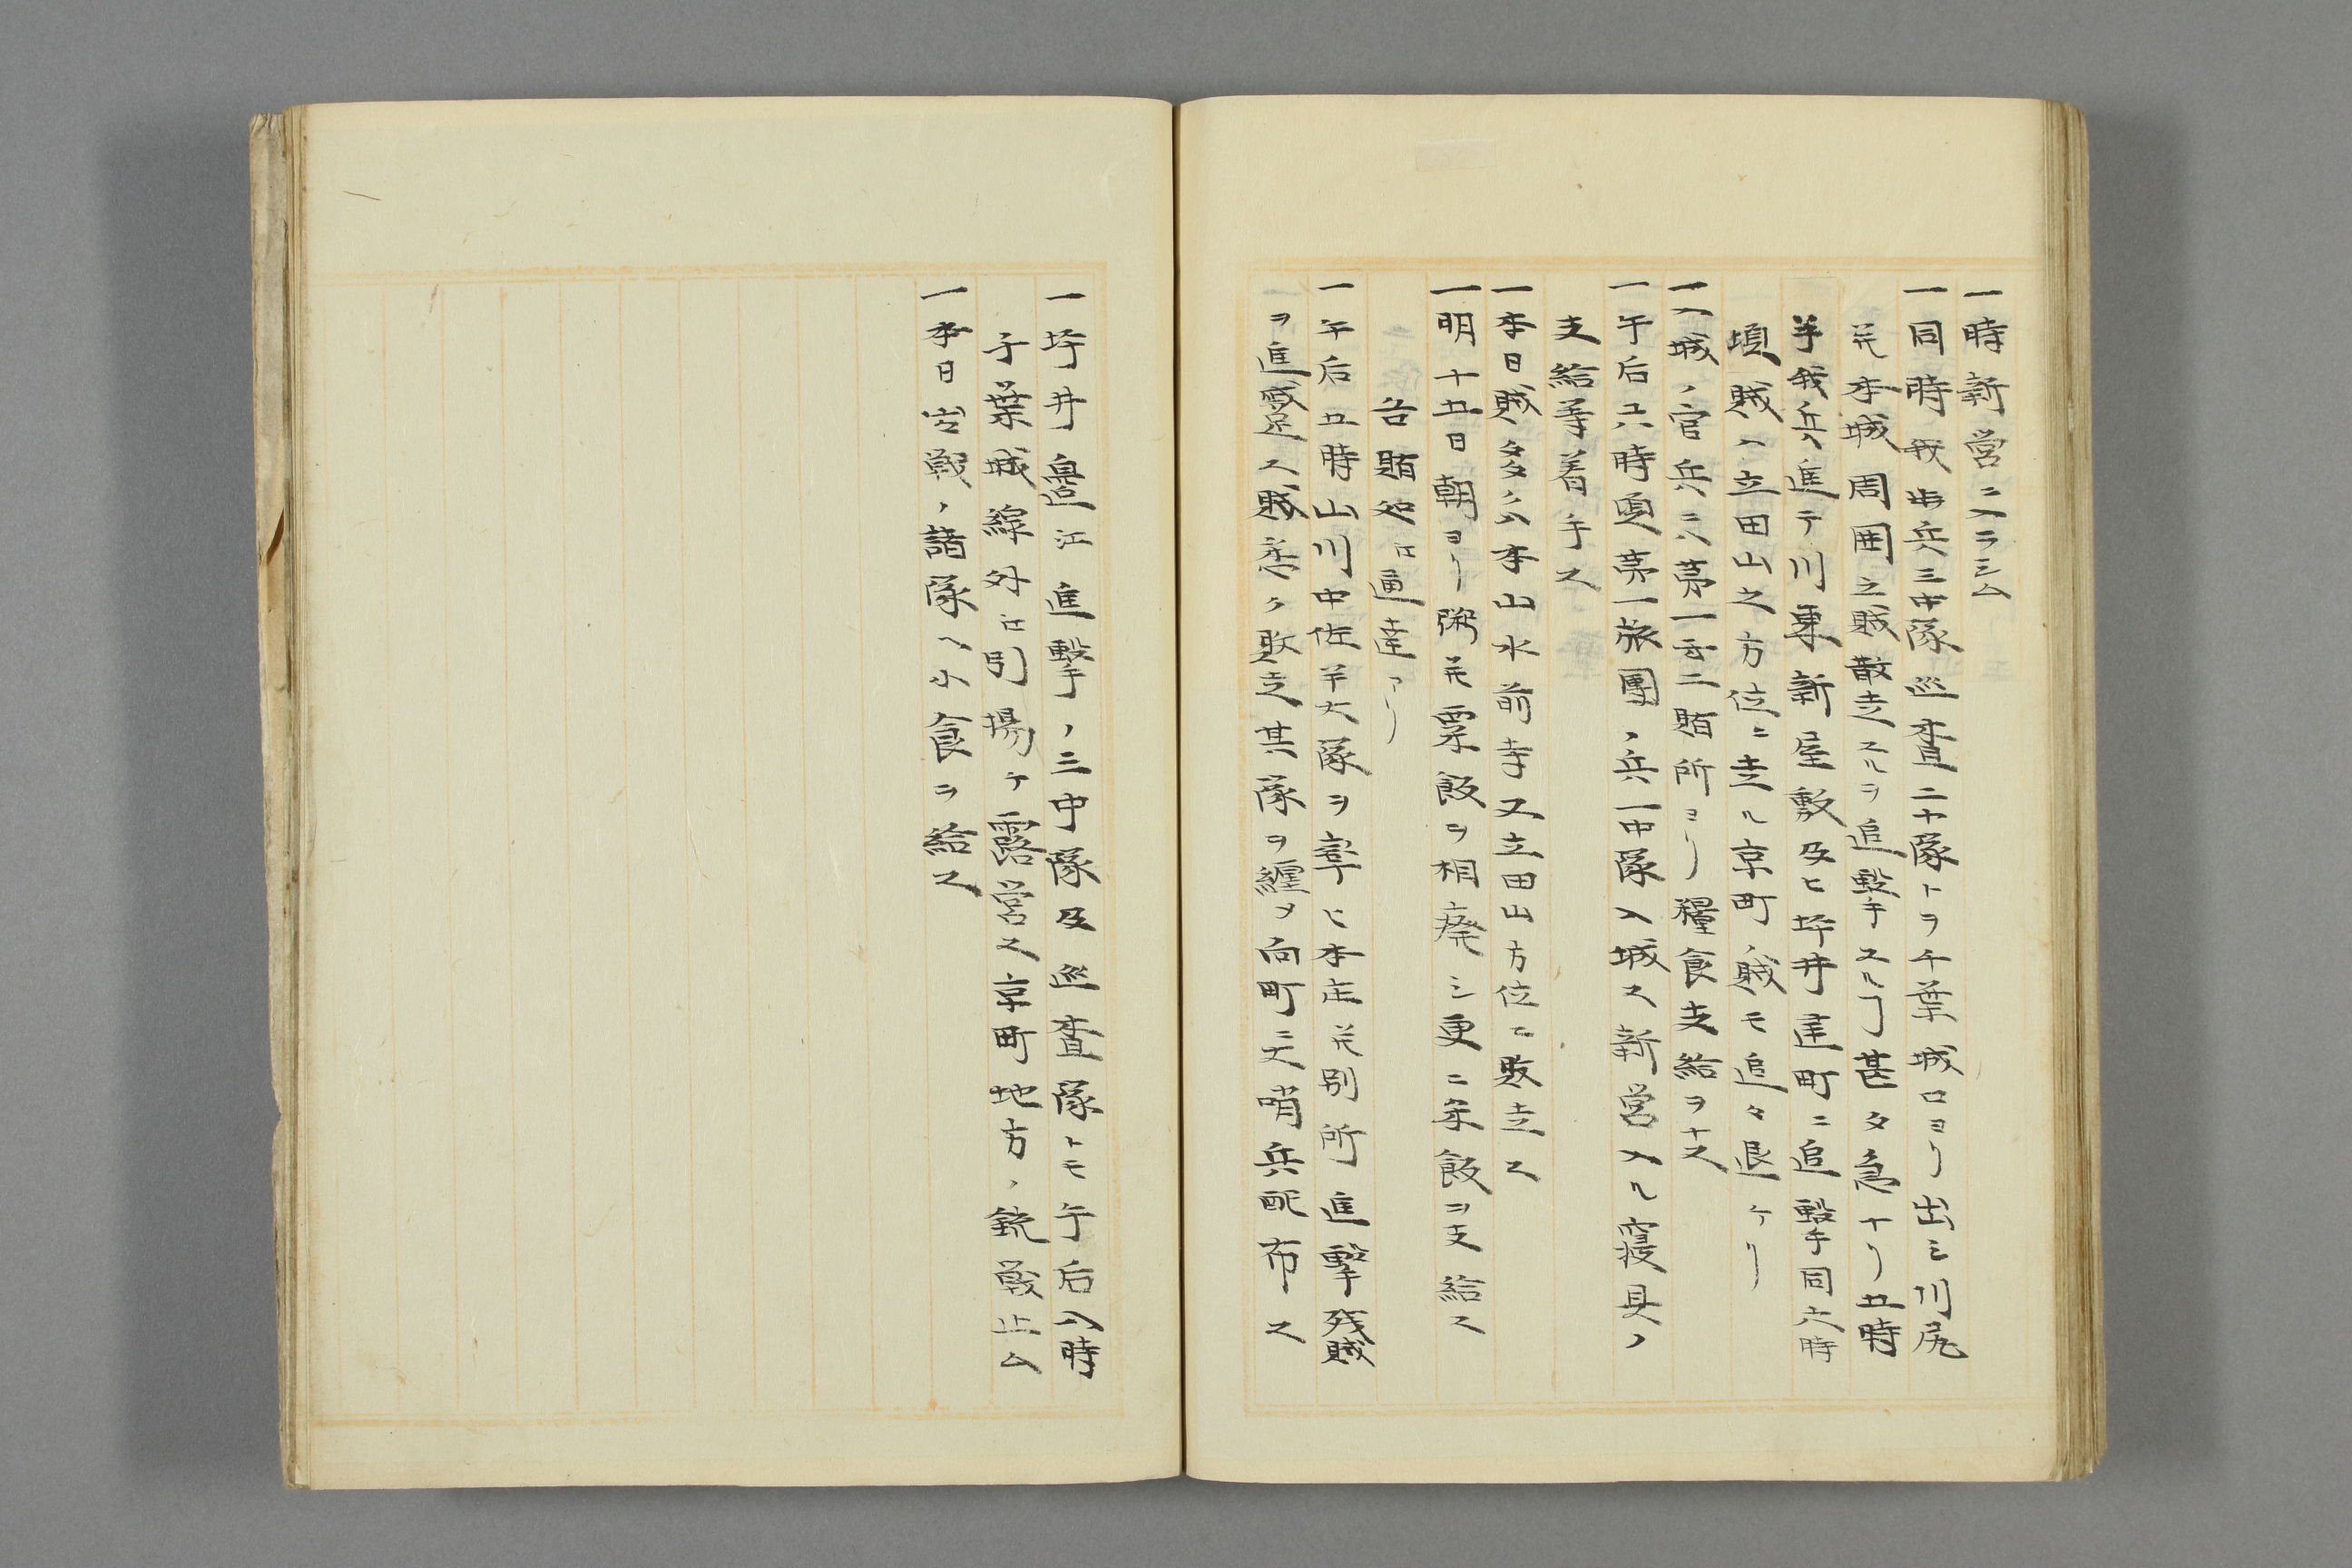 一時新営ニ入ラシム
一同時我歩兵三中隊巡査二十隊トヲ千葉城口ヨリ出シ川尻
並本城周囲之賊散走スルヲ追撃スルヿ甚タ急ナリ五時
半我兵進テ川東新屋敷及ヒ坪井建町ニ追撃同六時
頃賊ハ立田山之方位ニ走ル京町ノ賊モ追々退ケリ
一入城ノ官兵ニハ第一第二賄所ヨリ糧食支給ヲナス
一午后六時頃第一旅團ノ兵一中隊入城ス新営ヘ入ル寝具ノ
支給等着手ス
一本日賊多分ハ本山水前寺又立田山方位ニ敗走ス
一明十五日朝ヨリ粥並粟飯ヲ相廃シ更ニ米飯ヲ支給ス
各賄所江通達アリ
一午后五時山川中佐半大隊ヲ率ヒ本庄並別所進撃残賊
ヲ進撃ス賊悉ク敗走其隊ヲ纏メ向町ニ大哨兵配布ス
一坪井邉江進撃ノ三中隊及巡査隊トモ午后八時
千葉城線外江引揚ケ露営ス京町地方ノ銃戦止ム
一本日出戦ノ諸隊ヘハ牛食ヲ給ス